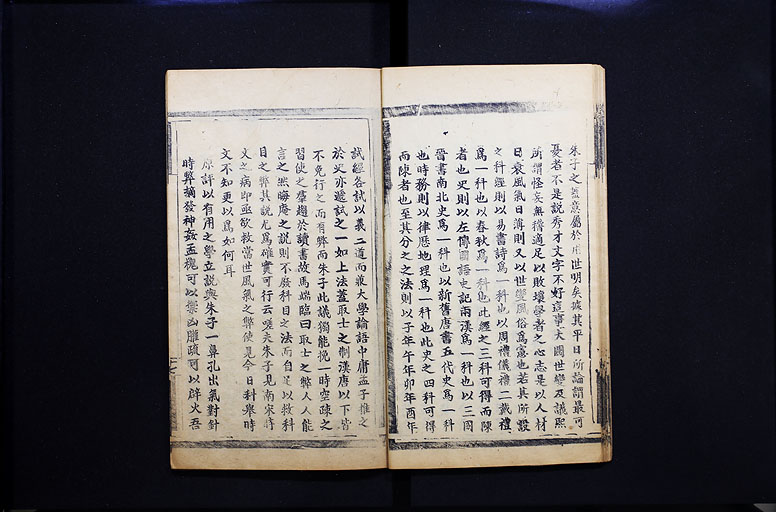 朱子之意屬於用世明矣據其平日所論謂最可
憂者不是說秀才文字不好這事大關世變及議熙
所謂怪妄無稽適足以敗壞學者之心志是以人材
日衰風氣日薄則又以世變風俗爲憲也若其所設
之科經則以易書詩爲一科也以周禮儀禮二戴禮
爲一科也以春秋爲一科也此經之三科可得而陳
者也史則以左傳國語史記兩漢爲一科也以三國
晉書南北史爲一科也以新舊唐書五代史爲一科
也時務則以律歷地理爲一科也此史之四科可得
而陳者也至其分之之法則以子年午年卯年酉年
試經各試以義二道而兼大學論語中庸孟子推之
於史亦遞試之一如上法蓋取士之制漢唐以下皆
不免行之而有弊而朱子此議獨能挽一時空疎之
習使之羣趨於讀書故馬端臨曰取士之弊人人能
言之然晦庵之說則不廢科目之法而自足以救科
目之弊其說尤爲確實可行云嗟夫朱子見南宋時
文之病即亟欲救當世風氣之弊使見今日科舉時
文不知更以爲如何耳
原評以有用之學立說與朱子一鼻孔出氣對針
時弊摘發神姦孟槐可以禦凶䑏疏可以辟火吾